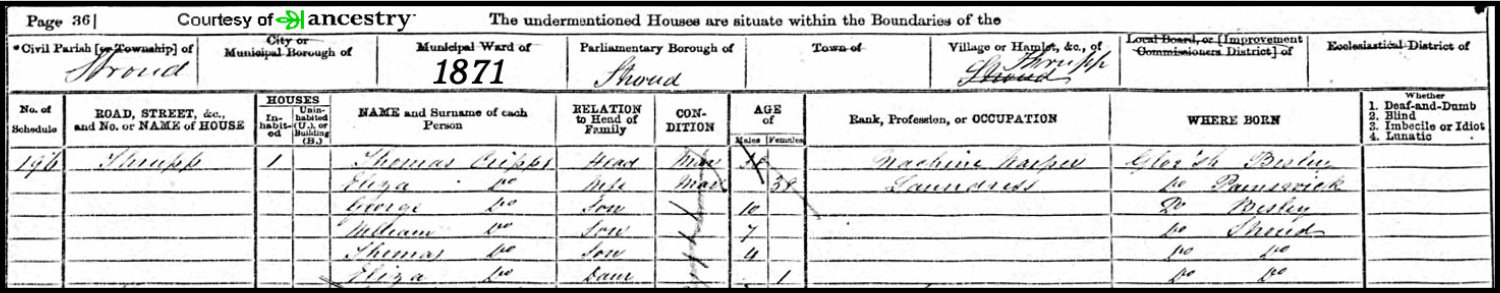 Page 36 Courtesy of ancestry The undermentioned Houses are situate within the Boundaries of the
*Civil Parish [or Township] of City or Municipal Borough of Municipal Ward of Parliamentary Borough of Town of Village or Hamlet, &c., of Local Board, or [Improvement Commissioners District] of Ecclesiastical District of
Stroud 1871 Stroud Stroud Thrupp
No. of Schedule ROAD, STREET, &c., and No. or NAME of HOUSE HOUSES Inhabited Uninhabited (U.), or Building (B.) NAME and Surname of each Person RELATION to Head of Family CONDITION AGE of Males Females Rank, Profession, or OCCUPATION WHERE BORN Whether 1. Deaf-and-Dumb 2. Blind 3. Imbecile or Idiot 4. Lunatic
196 Thrupp 1 Thomas Cripps Head Mar Machine Glos'sh Bisley
Eliza Do Wife Mar 38 Laundress Do Painswick
George Do Son 10 Do Bisley
William Do Son 7 Do Stroud
Thomas Do Son 4 Do Do
Eliza Do Daur 1 Do Do